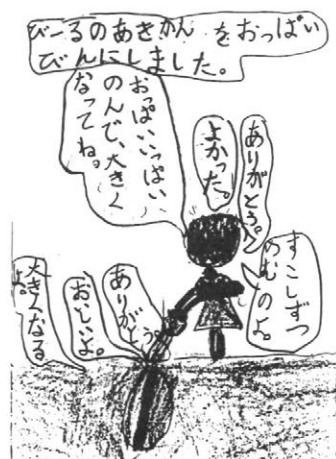 びーるのあきかん をおっぱい
びんにしました。
ありがとう。
よかった。
おっぱいいっぱい
のんで、大きく
なってね。
すこしずつ
のむのよ。
ありがとう
おいしいよ。
大きくなる
よ。